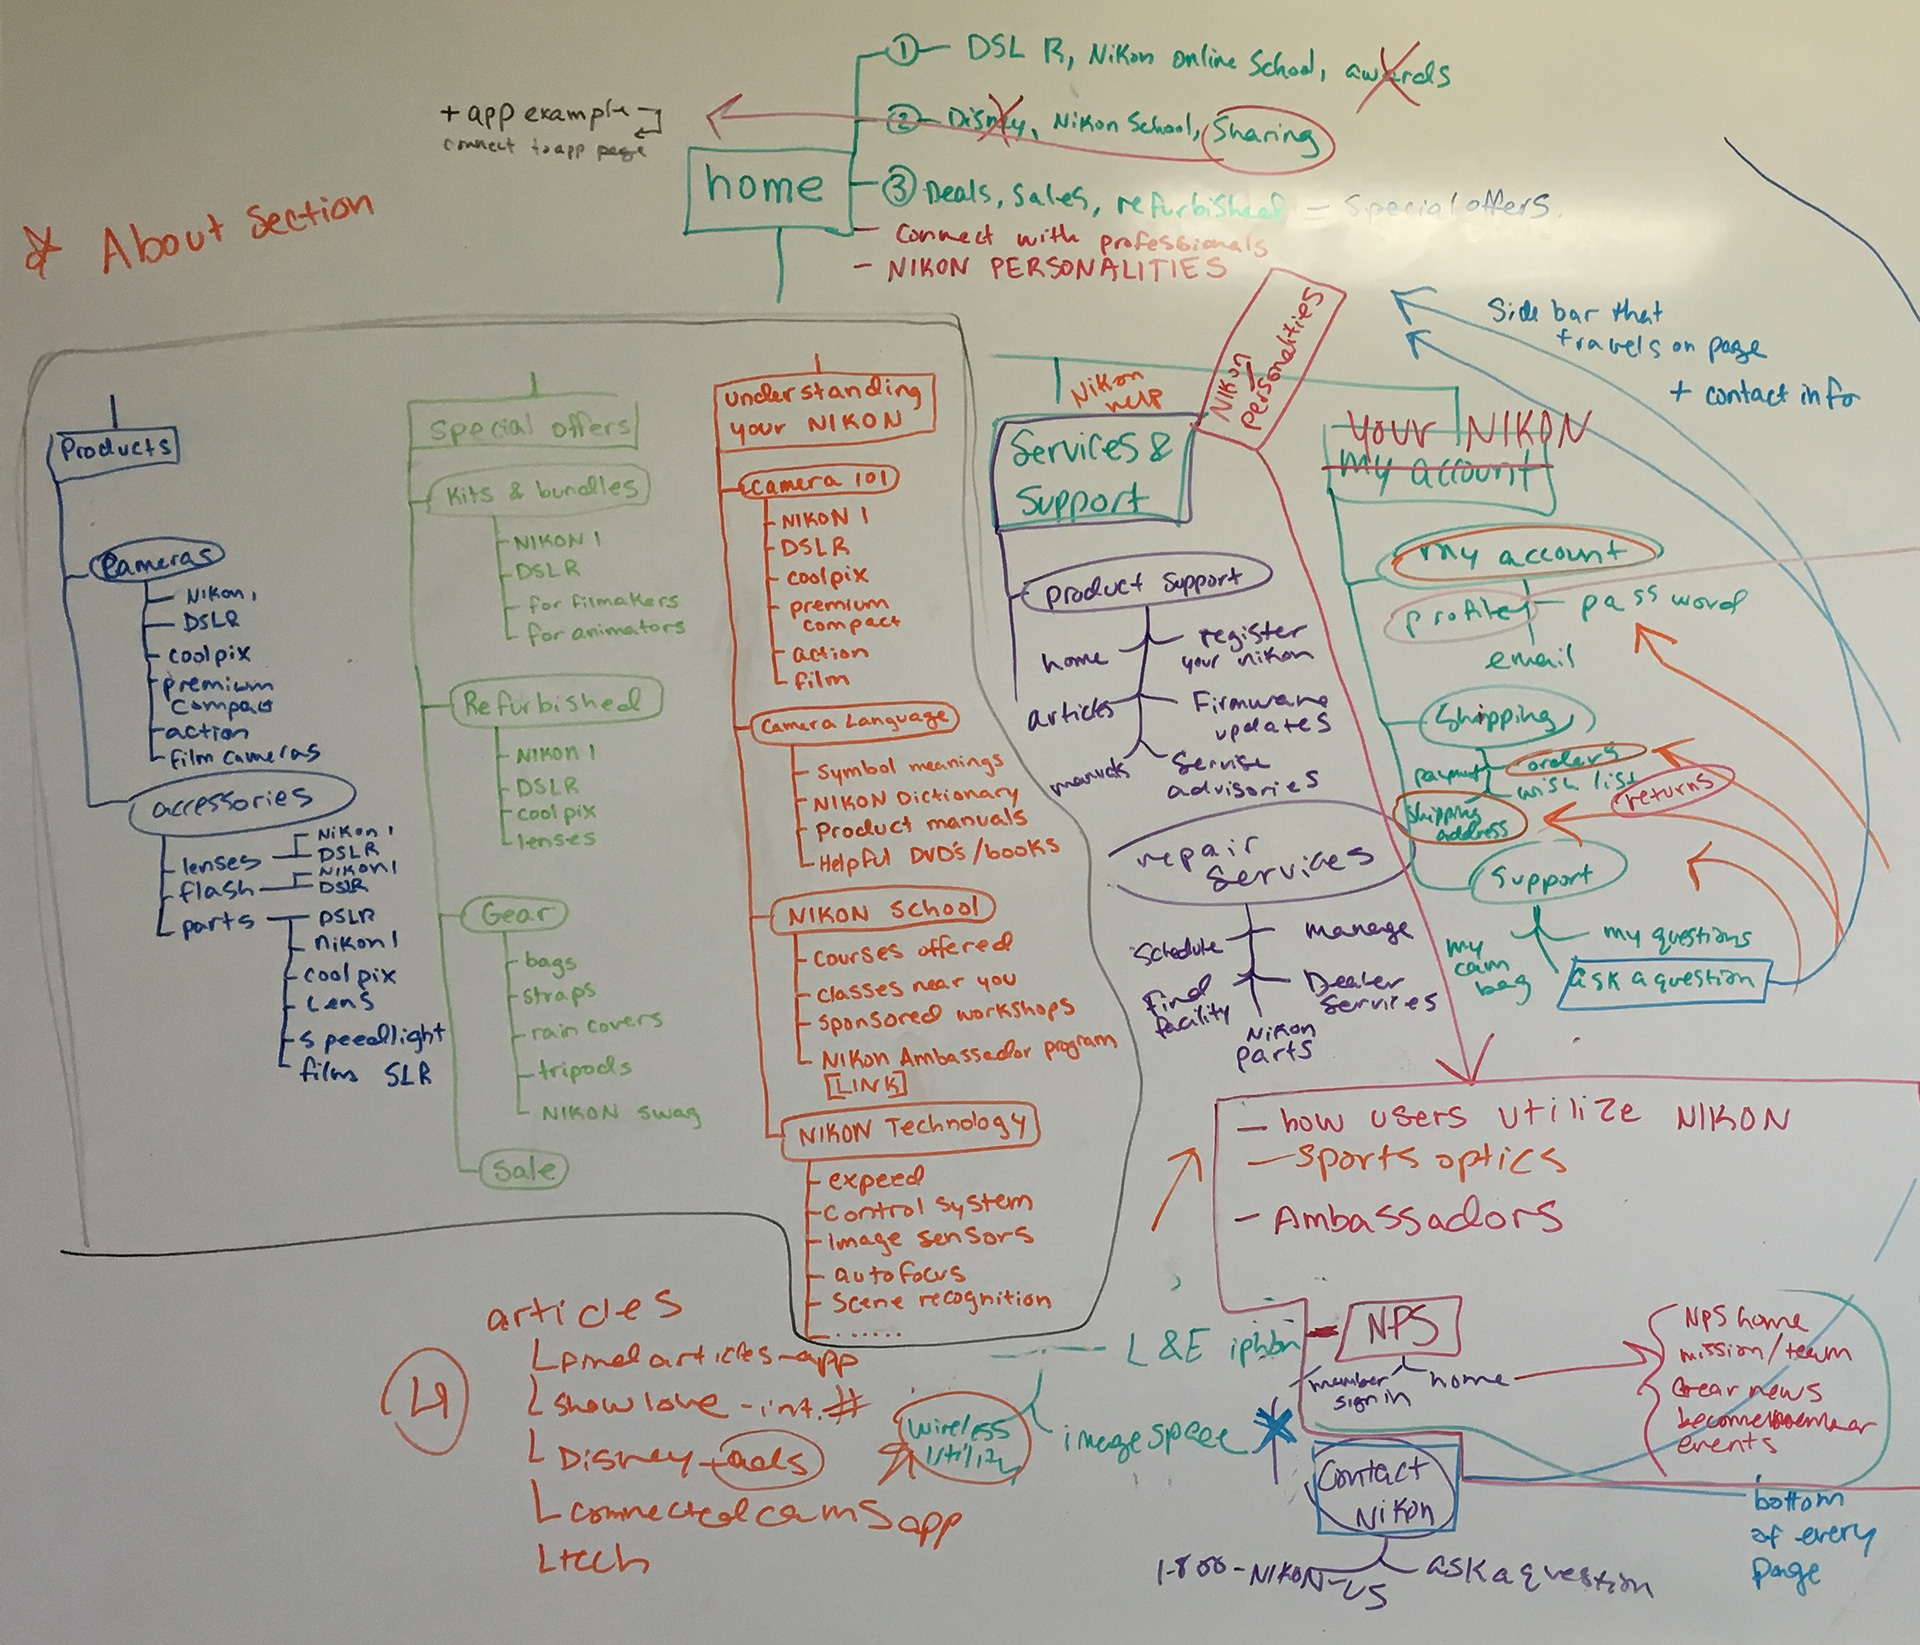 ① DSLR, Nikon online School, awards
② Disney, Nikon School, Sharing
③ Deals, Sales, refurbished = Special offers.
- Connect with professionals
- NIKON PERSONALITIES
+ app example
connect to app page
home
About Section
Side bar that
travels on page
+ contact info
Products
Cameras
Nikon 1
DSLR
coolpix
premium
compact
action
film cameras
accessories
lenses
Nikon 1
DSLR
flash
Nikon 1
DSLR
parts
DSLR
Nikon 1
coolpix
Lens
Speedlight
films SLR
Special offers
Kits & bundles
NIKON 1
DSLR
for filmakers
for animators
Refurbished
NIKON 1
DSLR
coolpix
lenses
Gear
bags
straps
rain covers
tripods
NIKON swag
Sale
understanding
your NIKON
Camera 101
NIKON 1
DSLR
coolpix
premium
compact
action
film
Camera Language
Symbol meanings
NIKON Dictionary
Product manuals
Helpful DVD's/books
NIKON School
Courses offered
classes near you
sponsored workshops
NIKON Ambassador program
[LINK]
NIKON Technology
expeed
Control system
Image sensors
autofocus
Scene recognition
......
Nikon
HELP
Services &
Support
NIKON
personalities
product support
home
register
your nikon
articles
Firmware
updates
manuals
Service
advisories
repair
Services
Schedule
manage
Find
facility
Dealer
Services
Nikon
parts
your NIKON
my account
my account
profile
password
email
Shipping
payment
orders
wish list
returns
shipping
address
Support
my
cam
bag
my questions
ask a question
- how users utilize NIKON
- Sports optics
- Ambassadors
NPS
member
sign in
home
NPS home
mission/team
Gear news
become member
events
L & E
Wireless
Utility
image space
Contact
Nikon
1-800-NIKON-US
ask a question
bottom
of every
page
4
articles
articles - app
show love - int. #
Disney - ads
connected cams app
tech